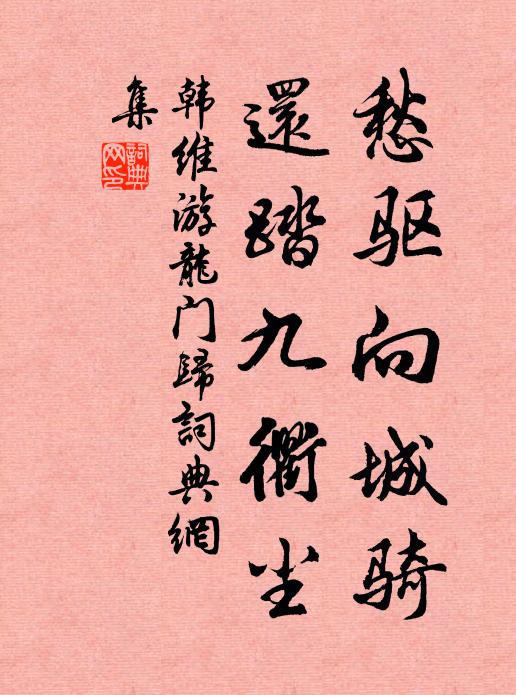 愁驱向城骑
還踏九衢尘
韩维游龍门歸詞典網
集
詞典网印